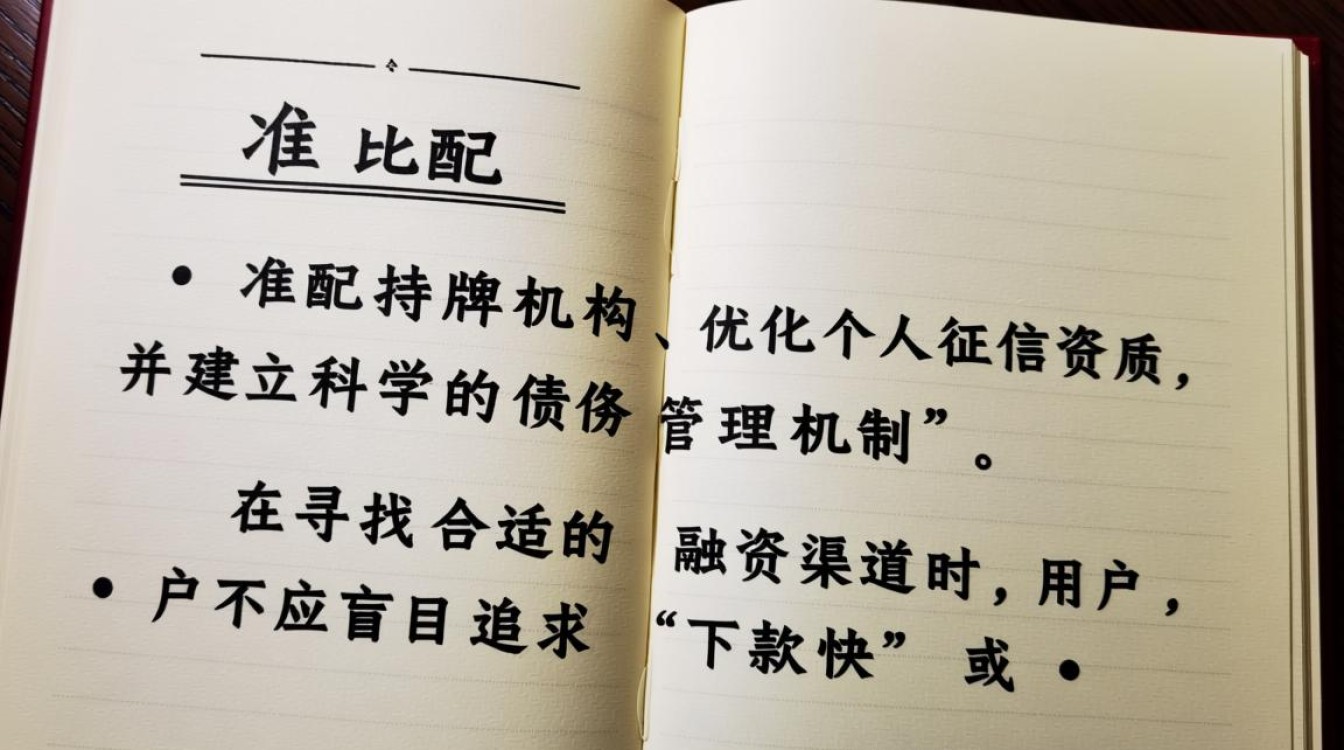 准 比配
• 准配持牌机构、优化个人征信资质，
并建立科学的债务管理机制”。
在寻找合适的 融资渠道时，用户，
• 户不应盲目追求 “下款快” 或 •